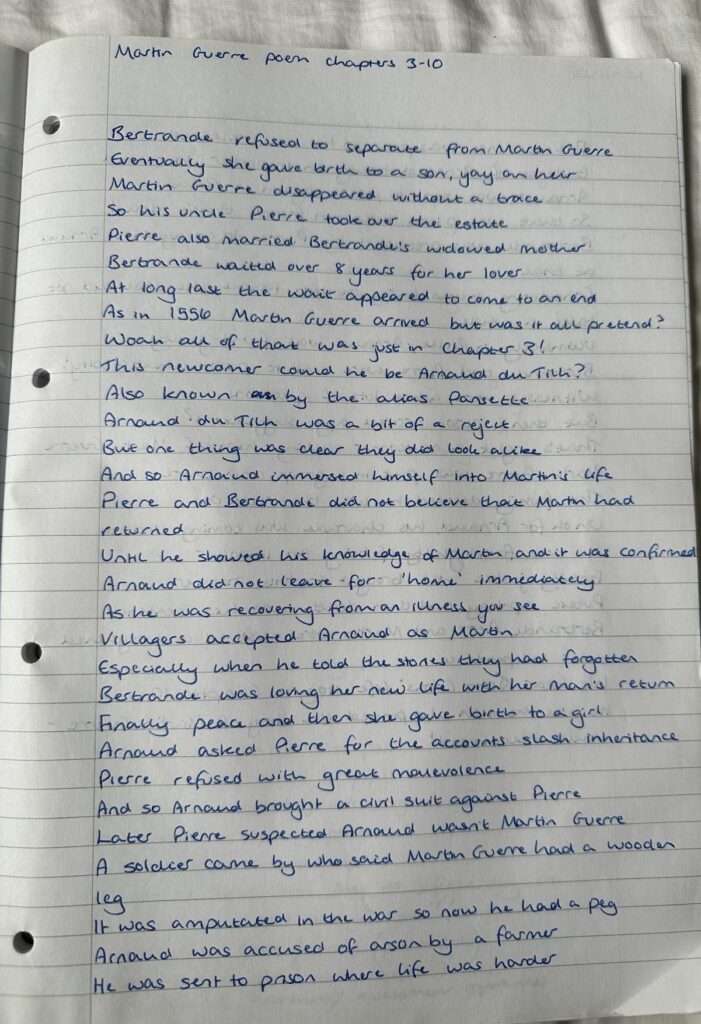 Martin Guerre poem chapters 3-10
Bertrande refused to separate from Martin Guerre
Eventually she gave birth to a son, yay an heir
Martin Guerre disappeared without a trace
So his uncle Pierre took over the estate
Pierre also married Bertrande's widowed mother
Bertrande waited over 8 years for her lover
At long last the wait appeared to come to an end
As in 1556 Martin Guerre arrived but was it all pretend?
Woah all of that was just in Chapter 3!
This newcomer could he be Arnaud du Tilh?
Also known by the alias Pansette
Arnaud du Tilh was a bit of a reject
But one thing was clear they did look alike
And so Arnaud immersed himself into Martin's life
Pierre and Bertrande did not believe that Martin had
returned
Until he showed his knowledge of Martin and it was confirmed
Arnaud did not leave for 'home' immediately
As he was recovering from an illness you see
Villagers accepted Arnaud as Martin
Especially when he told the stories they had forgotten
Bertrande was loving her new life with her man's return
Finally peace and then she gave birth to a girl
Arnaud asked Pierre for the accounts slash inheritance
Pierre refused with great malevolence
And so Arnaud brought a civil suit against Pierre
Later Pierre suspected Arnaud wasn't Martin Guerre
A soldier came by who said Martin Guerre had a wooden
leg
It was amputated in the war so now he had a peg
Arnaud was accused of arson by a farmer
He was sent to prison where life was harder